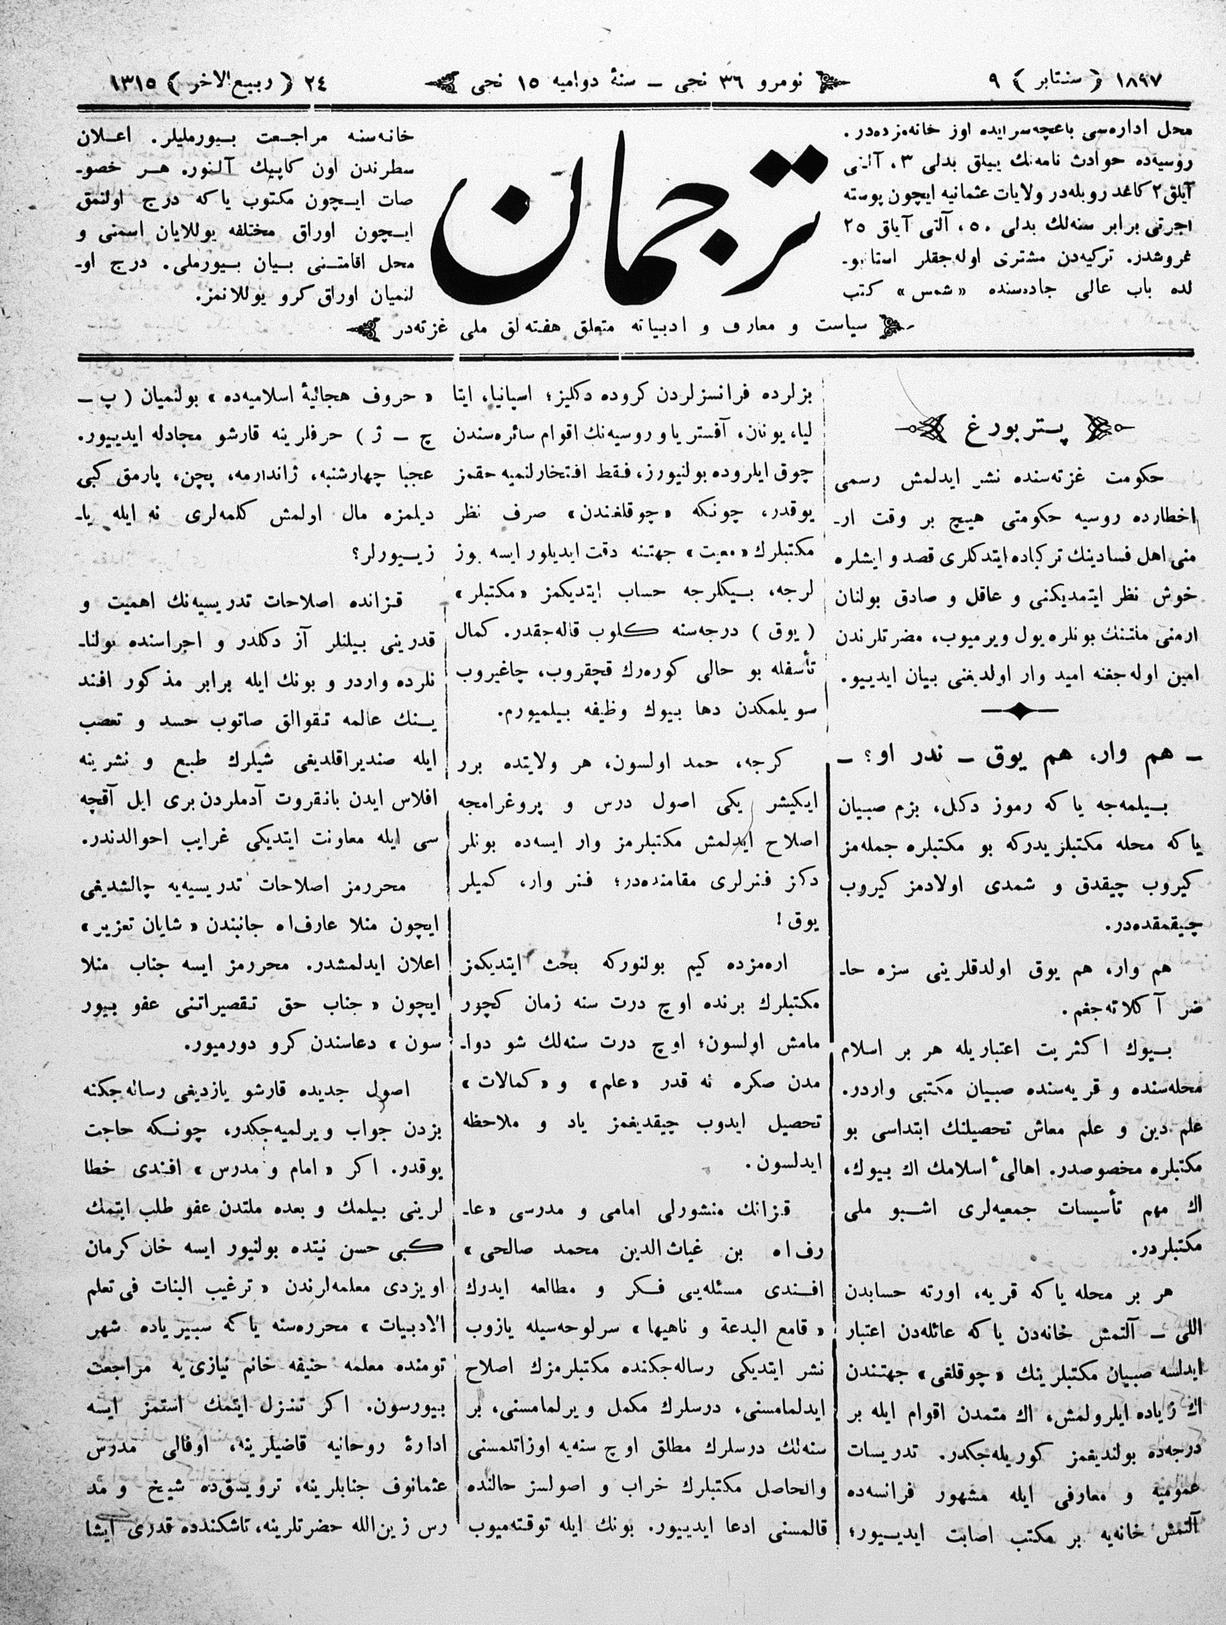 ١٨٩٧ ( سنتابر ) ٩
نومرو ٣٦ نجی ــ سنهٔ دوامیه ١٥ نجی
٢٤ ( ربیع‌الاخر ) ١٣١٥
محل اداره‌سی باغچه‌سرایده اوز خانه‌مزده‌در.
روسیه‌ده حوادث نامه‌نك ییللق بدلی ٣، آلتی
آیلق ٢ كاغد روبله‌در ولایات عثمانیه ایچون پوسته
اجرتی برابر سنه‌لك بدلی ٥٠، آلتی آیلق ٢٥
غروشدر. تركیه‌دن مشتری اوله‌جقلر استانبو-
لده باب عالی جاده‌سنده «شمس» كتب
ترجمان
خانه‌سنه مراجعت بیورملیلر. اعلان
سطرندن اون كاپیك آلنور. هر خصو-
صات ایچون مكتوب یاكه درج اولنمق
ایچون اوراق مختلفه یوللایان اسمنی و
محل اقامتنی بیان بیورملی. درج او-
لنمیان اوراق كرو یوللانمز.
سیاست و معارف و ادبیاته متعلق هفته‌لق ملی غزته‌در
پتربورغ
حكومت غزته‌سنده نشر ایدلمش رسمی
اخطارده روسیه حكومتی هیچ بر وقت ار-
منی اهل فسادینك تركیاده ایتدكلری قصد و ایشلره
خوش نظر ایتمدیكنی و عاقل و صادق بولنان
ارمنی ملتنك بونلره یول ویرمیوب، مضرتلرندن
امین اوله‌جغنه امید وار اولدیغنی بیان ایدییو.
ــ هم وار، هم یوق ــ ندر او؟ ــ
بیلمه‌جه یاكه رموز دكل، بزم صبیان
یاكه محله مكتبلریدركه بو مكتبلره جمله‌مز
كیروب چیقدق و شمدی اولادمز كیروب
چیقمقده‌در.
هم وار، هم یوق اولدقلرینی سزه حا-
ضر آكلاته‌جغم.
بیوك اكثریت اعتباریله هر بر اسلام
محله‌سنده و قریه‌سنده صبیان مكتبی واردر.
علم دین و علم معاش تحصیلنك ابتداسی بو
مكتبلره مخصوصدر. اهالیٔ اسلامك اك بیوك،
اك مهم تأسیسات جمعیه‌لری اشبو ملی
مكتبلردر.
هر بر محله یاكه قریه، اورته حسابدن
اللی ــ آلتمش خانه‌دن یاكه عائله‌دن اعتبار
ایدلسه صبیان مكتبلرینك «چوقلغی» جهتندن
اك زیاده ایلرولمش، اك متمدن اقوام ایله بر
درجه‌ده بولندیغمز كوریله‌جكدر. تدریسات
عمومیه و معارفی ایله مشهور فرانسه‌ده
آلتمش خانه‌یه بر مكتب اصابت ایدییور؛
بزلرده فرانسزلردن كروده دكلیز؛ اسپانیا، ایتا
لیا، یونان، آفستریا و روسیه‌نك اقوام سائره‌سندن
چوق ایلروده بولنیورز، فقط افتخارلنمیه حقمز
یوقدر، چونكه «چوقلغندن» صرف نظر
مكتبلرك «معیت» جهتنه دقت ایدیلور ایسه یوز
لرجه، بیكلرجه حساب ایتدیكمز «مكتبلر»
( یوق ) درجه‌سنه كلوب قاله‌جقدر. كمال
تأسفله بو حالی كوره‌رك قچقروب، چاغیروب
سویلمكدن دها بیوك وظیفه بیلمیورم.
كرچه، حمد اولسون، هر ولایتده برر
ایكیشر یكی اصول درس و پروغرامجه
اصلاح ایدلمش مكتبلرمز وار ایسه‌ده بونلر
دكز فنرلری مقامنده‌در؛ فنر وار، كمیلر
یوق!
اره‌مزده كیم بولنوركه بحث ایتدیكمز
مكتبلرك برنده اوچ درت سنه زمان كچور
مامش اولسون؛ اوچ درت سنه‌لك شو دوا-
مدن صكره نه قدر «علم» و «كمالات»
تحصیل ایدوب چیقدیغمز یاد و ملاحظه
ایدلسون.
قزانك منشورلی امامی و مدرسی «عا-
رف‌اه بن غیاث‌الدین محمد صالحی»
افندی مسئله‌یی فكر و مطالعه ایدرك
«قامع البدعة و ناهیها» سرلوحه‌سیله یازوب
نشر ایتدیكی رساله‌جكنده مكتبلرمزك اصلاح
ایدلمامسنی، درسلرك مكمل ویرلمامسنی، بر
سنه‌لك درسلرك مطلق اوچ سنه‌یه اوزاتلمسنی
والحاصل مكتبلرك خراب و اصولسز حالنده
قالمسنی ادعا ایدییور. بونك ایله توقته‌میوب
«حروف هجائیهٔ اسلامیه‌ده» بولنمیان ( پ ــ
چ ــ ژ ) حرفلرینه قارشو مجادله ایدییور.
عجبا چهارشنبه، ژاندارمه، پچن، پارمق كبی
دیلمزه مال اولمش كلمه‌لری نه ایله یا-
زیورلر؟
قزانده اصلاحات تدریسیه‌نك اهمیت و
قدرینی بیلنلر آز دكلدر و اجراسنده بولنا-
نلرده واردر و بونك ایله برابر مذكور افند
ینك عالمه تقوالق صاتوب حسد و تعصب
ایله صندیراقلدیغی شیلرك طبع و نشرینه
افلاس ایدن بانقروت آدملردن بری ایل آقچه
سی ایله معاونت ایتدیكی غرایب احوالدندر.
محررمز اصلاحات تدریسیه‌یه چالشدیغی
ایچون منلا عارف‌اه جانبندن «شایان تعزیر»
اعلان ایدلمشدر. محررمز ایسه جناب منلا
ایچون «جناب حق تقصیراتنی عفو بیور
سون» دعاسندن كرو دورمیور.
اصول جدیده قارشو یازدیغی رساله‌جكنه
بزدن جواب ویرلمیه‌جكدر، چونكه حاجت
یوقدر. اكر «امام و مدرس» افندی خطا
لرینی بیلمك و بعده ملتدن عفو طلب ایتمك
كبی حسن نیتده بولنیور ایسه خان كرمان
اویزدی معلمه‌لرندن «ترغیب البنات فی تعلم
الادبیات» محرره‌سنه یاكه سبیریاده شهر
تومنده معلمه حنیفه خانم نیازی‌یه مراجعت
بیورسون. اكر تنزل ایتمك استمز ایسه
ادارهٔ روحانیه قاضیلرینه، اوفالی مدرس
عثمانوف جنابلرینه، ترویسق‌ده شیخ و مد
رس زین‌الله حضرتلرینه، تاشكندده قدری ایشا